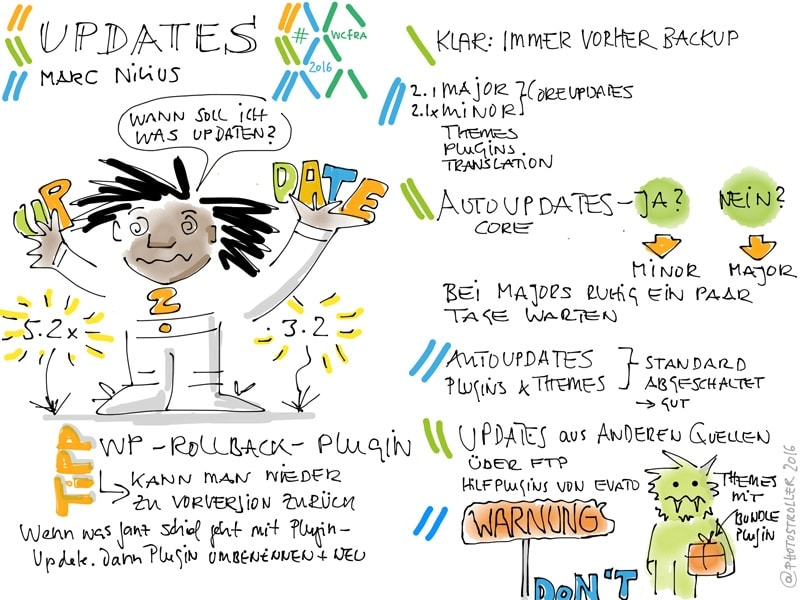 UPDATES
MARC NILIUS
# WCFRA
2016
WANN SOLL ICH
WAS UPDATEN?
UP DATE
5.2x
3.2
TIPP
WP-ROLLBACK-PLUGIN
KANN MAN WIEDER
ZU VORVERSION ZURÜCK
Wenn was ganz schief geht mit Plugin-
Update. Dann Plugin UMBENENNEN + NEU
KLAR: IMMER VORHER BACKUP
2.1 MAJOR } COREUPDATES
2.1x MINOR
THEMES
PLUGINS
TRANSLATION
AUTOUPDATES - JA? NEIN?
CORE
MINOR MAJOR
BEI MAJORS RUHIG EIN PAAR
TAGE WARTEN
AUTOUPDATES
PLUGINS & THEMES
STANDARD
ABGESCHALTET
→ GUT
UPDATES aus ANDEREN QUELLEN
ÜBER FTP
HILFPLUGINS VON EVATO
WARNUNG
DON'T
THEMES
MIT
BUNDLE
PLUGIN
@PHOTOSTROLLER 2016